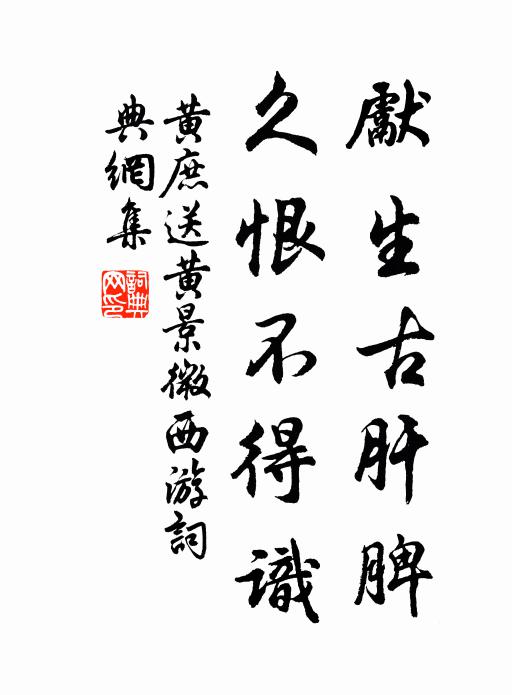 獻生古肝脾
久恨不得識
黄庶送黄景微西游詞
典網集
詞典
网印